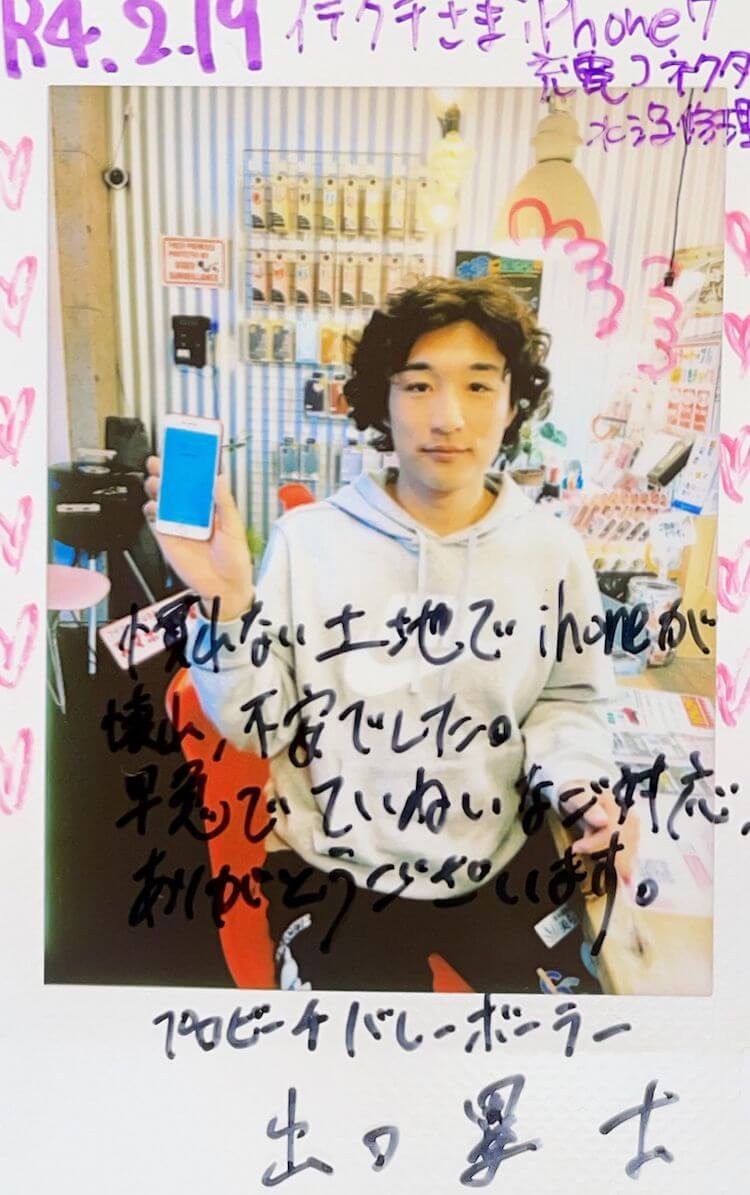 R4.2.19 イデクチさま iPhone7
充電コネクタ
水没修理
THESE PREMISES
PROTECTED BY
VIDEO
SURVEILLANCE
慣れない土地でihoneが
壊れ,不安でした。
早急でていねいなご対応,
ありがとうございます。
プロビーチバレーボーラー
出口 塁士